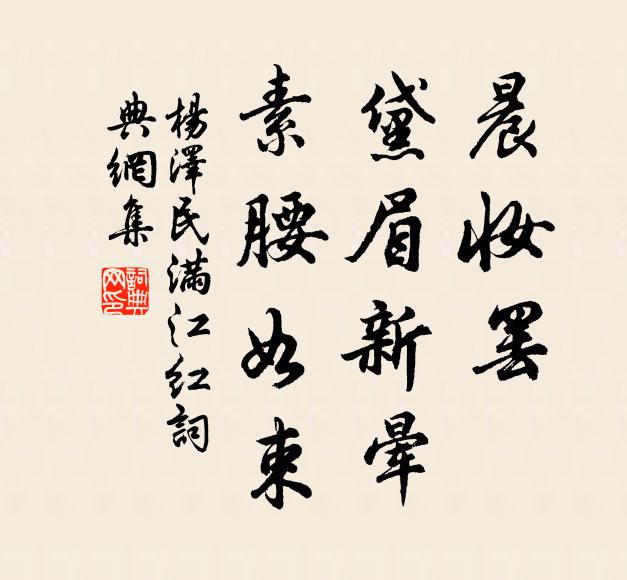 晨妝罷
黛眉新暈
素腰如束
楊澤民滿江紅詞
典網集
詞典
网印